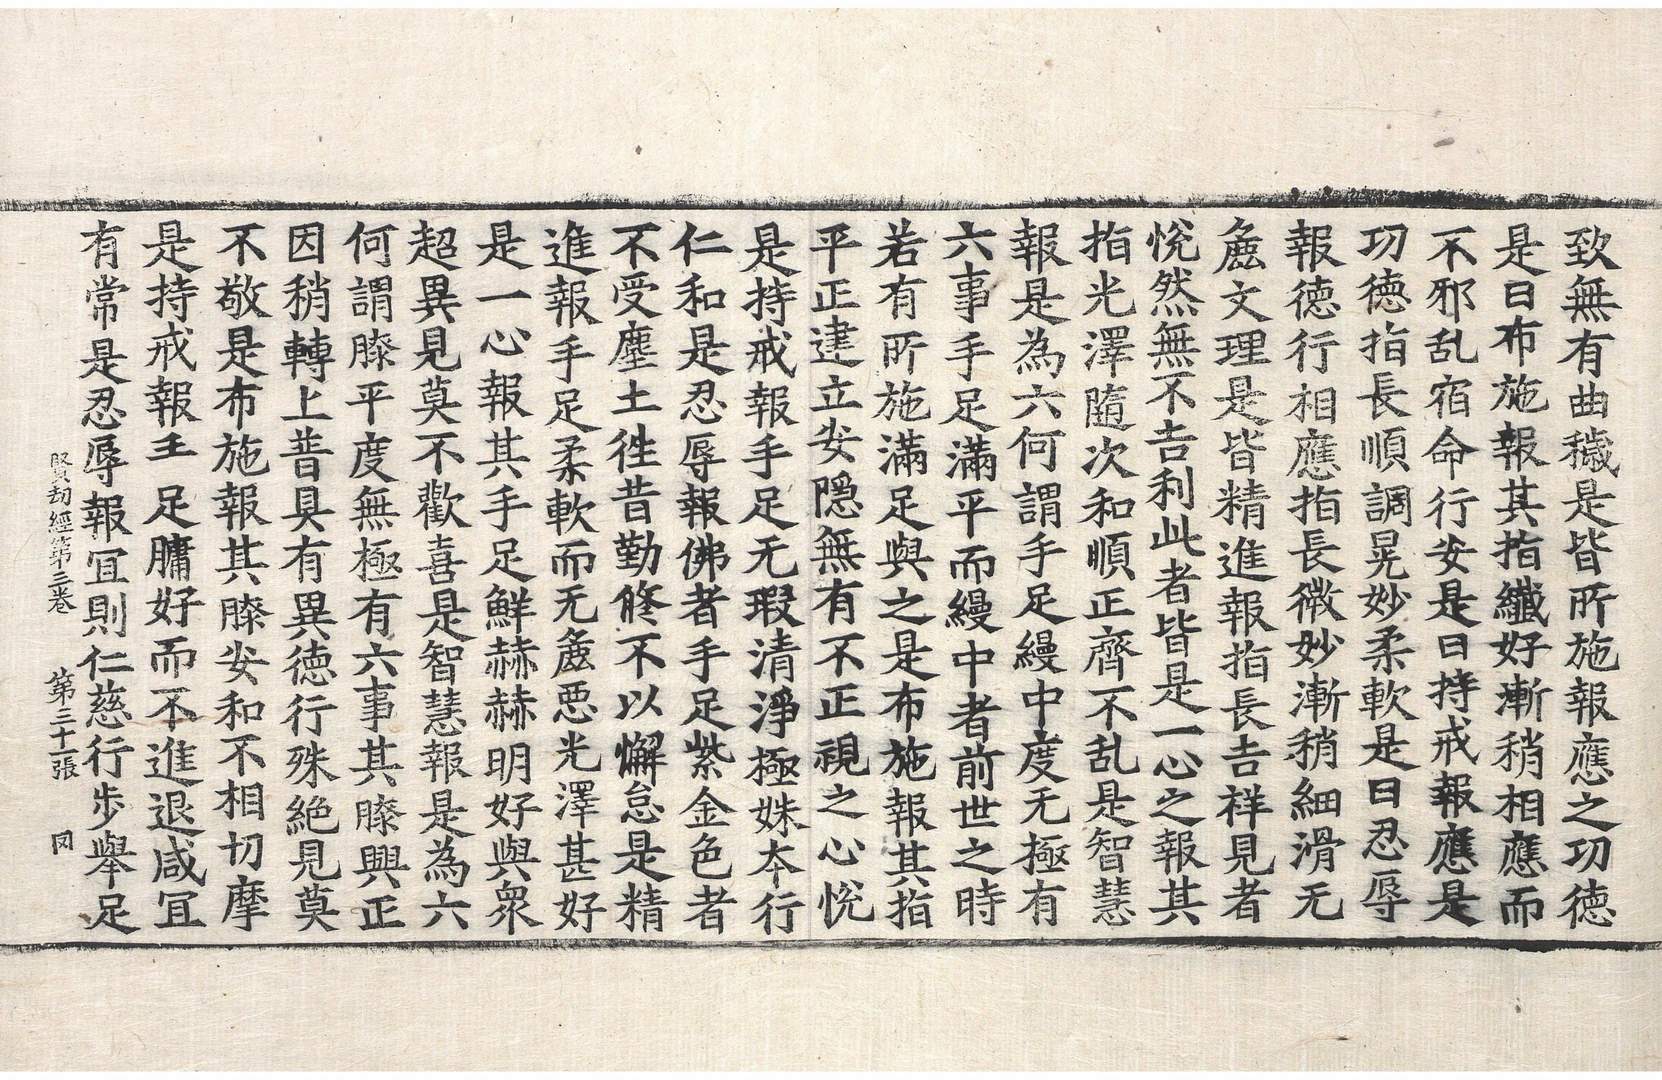 致無有曲穢是皆所施報應之功德
是曰布施報其指纖好漸稍相應而
不邪乱宿命行安是曰持戒報應是
功德指長順調晃妙柔軟是曰忍辱
報德行相應指長微妙漸稍細滑无
麁文理是皆精進報指長吉祥見者
悅然無不吉利此者皆是一心之報其
指光澤隨次和順正齊不乱是智慧
報是為六何謂手足縵中度无極有
六事手足滿平而縵中者前世之時
若有所施滿足與之是布施報其指
平正建立安隱無有不正視之心悅
是持戒報手足无瑕清淨極姝夲行
仁和是忍辱報佛者手足紫金色者
不受塵土徃昔勤修不以懈怠是精
進報手足柔軟而无麁惡光澤甚好
是一心報其手足鮮赫赫明好與衆
超異見莫不歡喜是智慧報是為六
何謂膝平度無極有六事其膝興正
因稍轉上普具有異德行殊絕見莫
不敬是布施報其膝安和不相切摩
是持戒報𤣩足𦟛好而不進退咸冝
有常是忍辱報冝則仁慈行步舉足
賢劫經第三卷 第三十一張 罔